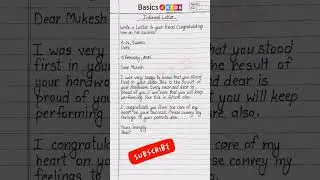 Basics 4 KIDS
Informal Letter
Write a Letter to your friend Congratulating
him on his success.
Delhi
Dear Mukesh
I was very happy to know that you stood
first in your class. This is the result
of your hardwork. Every near and dear is
proud of you. I am sure that you will keep
performing like this in future also.
I congratulate you from the core of my
heart on your success. Please convey my
feelings to your parents also.
Yours lovingly
SUBSCRIBE
Dear Mukesh
I was very
first in your
of your hard
proud of you
performing
I congratul
heart on yo
feelings to
that you stood
the result
and dear is
you will keep
also.
core of my
convey my